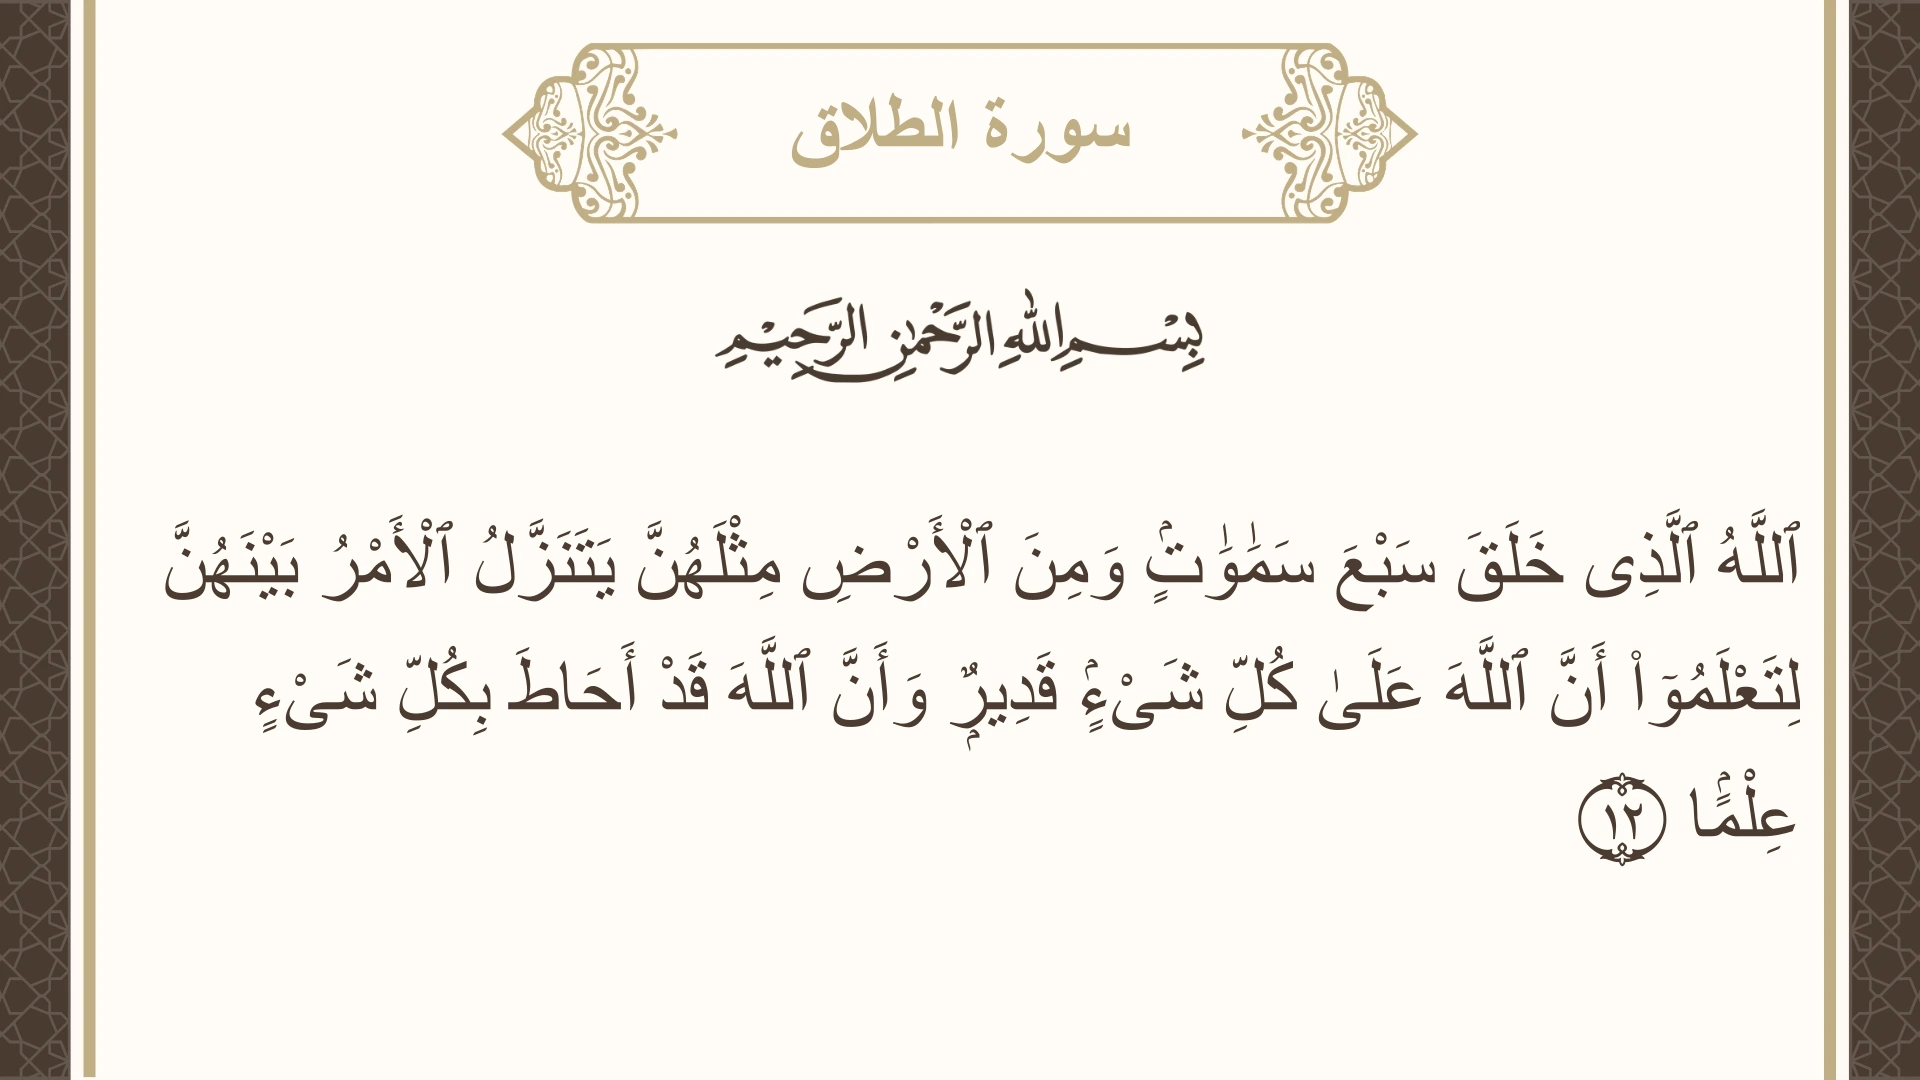 سورة الطلاق
بِسْمِ اللهِ الرَّحْمٰنِ الرَّحِيْمِ
ٱللَّهُ ٱلَّذِى خَلَقَ سَبْعَ سَمَٰوَٰتٍۢ وَمِنَ ٱلْأَرْضِ مِثْلَهُنَّ يَتَنَزَّلُ ٱلْأَمْرُ بَيْنَهُنَّ
لِتَعْلَمُوٓا۟ أَنَّ ٱللَّهَ عَلَىٰ كُلِّ شَىْءٍۢ قَدِيرٌۭ وَأَنَّ ٱللَّهَ قَدْ أَحَاطَ بِكُلِّ شَىْءٍ
عِلْمًۢا ١٢